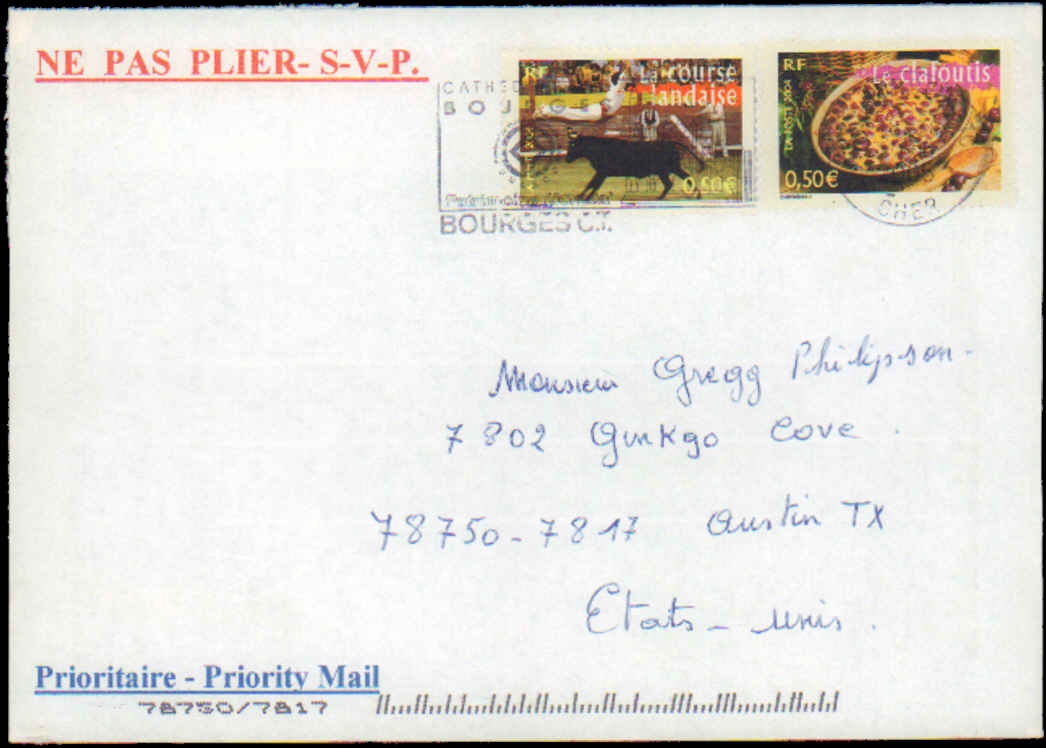 NE PAS PLIER- S-V-P.
RF
La course
landaise
0,50€
RF
Le clafoutis
LA POSTE 2004
0,50€
BOURGES C.T.
CHER
Monsieur Gregg Philipson.
7802 Ginkgo Cove.
78750-7817 Austin TX
Etats-unis.
Prioritaire - Priority Mail
78750/7817